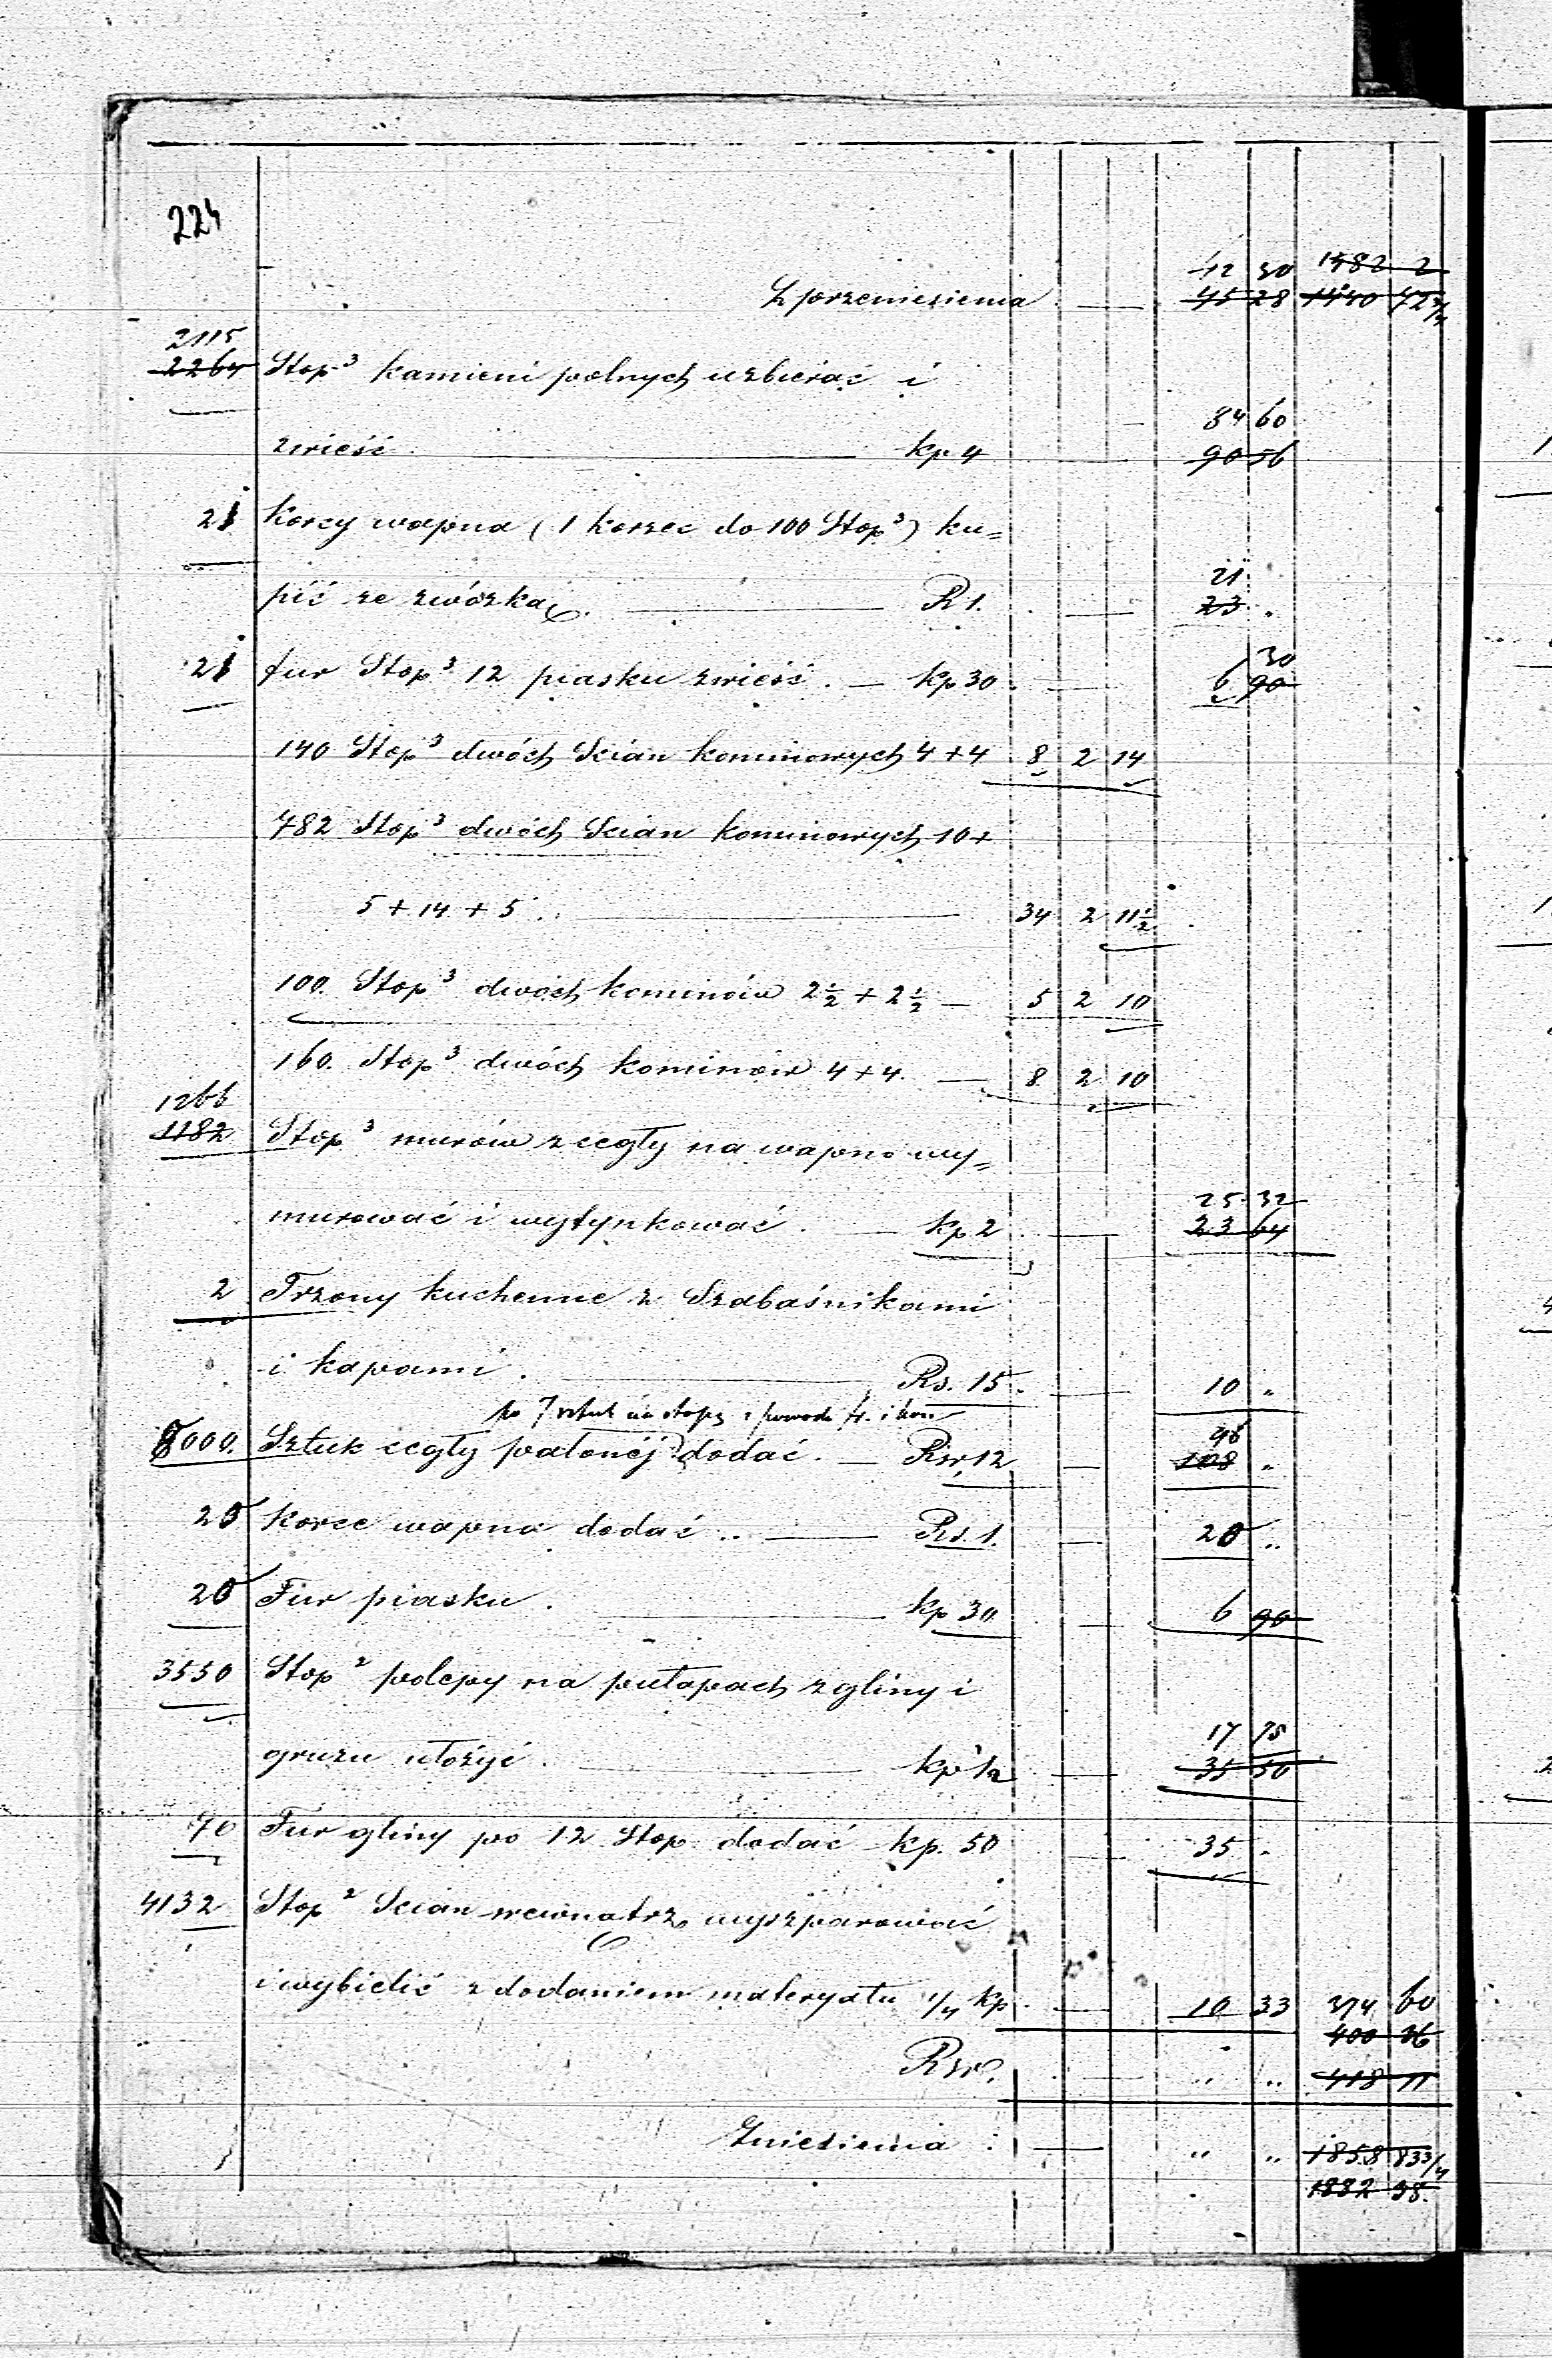 224
12 30 1482 2
Z przeniesienia 45 28 1440 72 3/4
2115
2264 Stop³ kamieni polnych uzbierać i
84 60
zwieść kp 4 90 56
21 Korcy wapna (1 korzec do 100 Stop³) ku=
21
pić ze zwózką. R 1. 23 "
30
21 fur Stop³ 12 piasku zwieść. — kp 30 6 90
140 Stop³ dwóch Scian kominowych 4 + 4 8 2 14
782 Stop³ dwóch Scian kominowych 10 +
5 + 14 + 5. 34 2 11½
100. Stop³ dwóch kominów 2½ + 2½ — 5 2 10
160. Stop³ dwóch kominów 4 + 4. — 8 2 10
1266
1182 Stop³ murów z cegły na wapno wy=
25 32
murować i wytynkować. kp 2 23 64
2 Trzony kuchenne z Szabaśnikami
i kapami. Rs. 15. 10 "
po 7 sztuk na stopę z powodu
96
8000. Sztuk cegły palonéj dodać. — Rsr. 12 108 "
20 Korce wapna dodać .. — Rs. 1. 20 "
20 Fur piasku. kp 30 6 90
3550 Stop² polepy na pułapach z gliny i
17 75
gruzu ułożyć. kp ½ 35 50
70 Fur gliny po 12 Stop dodać kp. 50 35 "
4132 Stop² Scian wewnątrz wyszparować
i wybielić z dodaniem materyału ¼ kp 10 33 374 60
400 36
Rsr. " " 418 11
Zniesienia : " " 1858 83 3/4
1882 38.